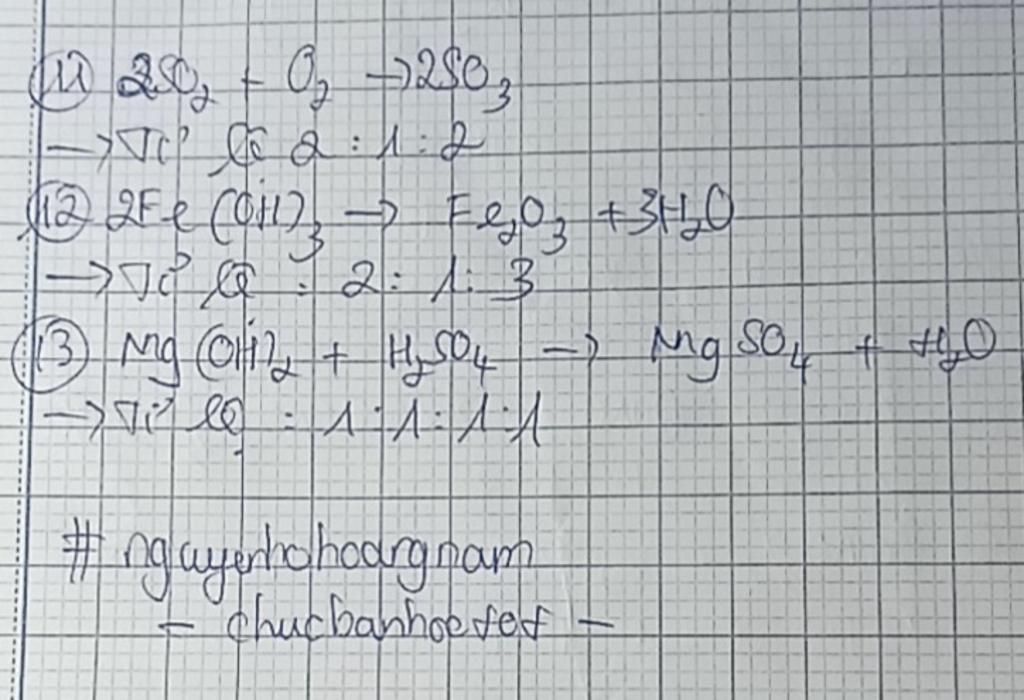 (11) 2SO₂ + O₂ → 2SO₃
→ Tỉ lệ 2 : 1 : 2
(12) 2Fe(OH)₃ → Fe₂O₃ + 3H₂O
→ Tỉ lệ : 2 : 1 : 3
(13) Mg(OH)₂ + H₂SO₄ → MgSO₄ + H₂O
→ Tỉ lệ : 1 : 1 : 1 : 1
# nguyenhohoangnam
- chucbanhoctot -